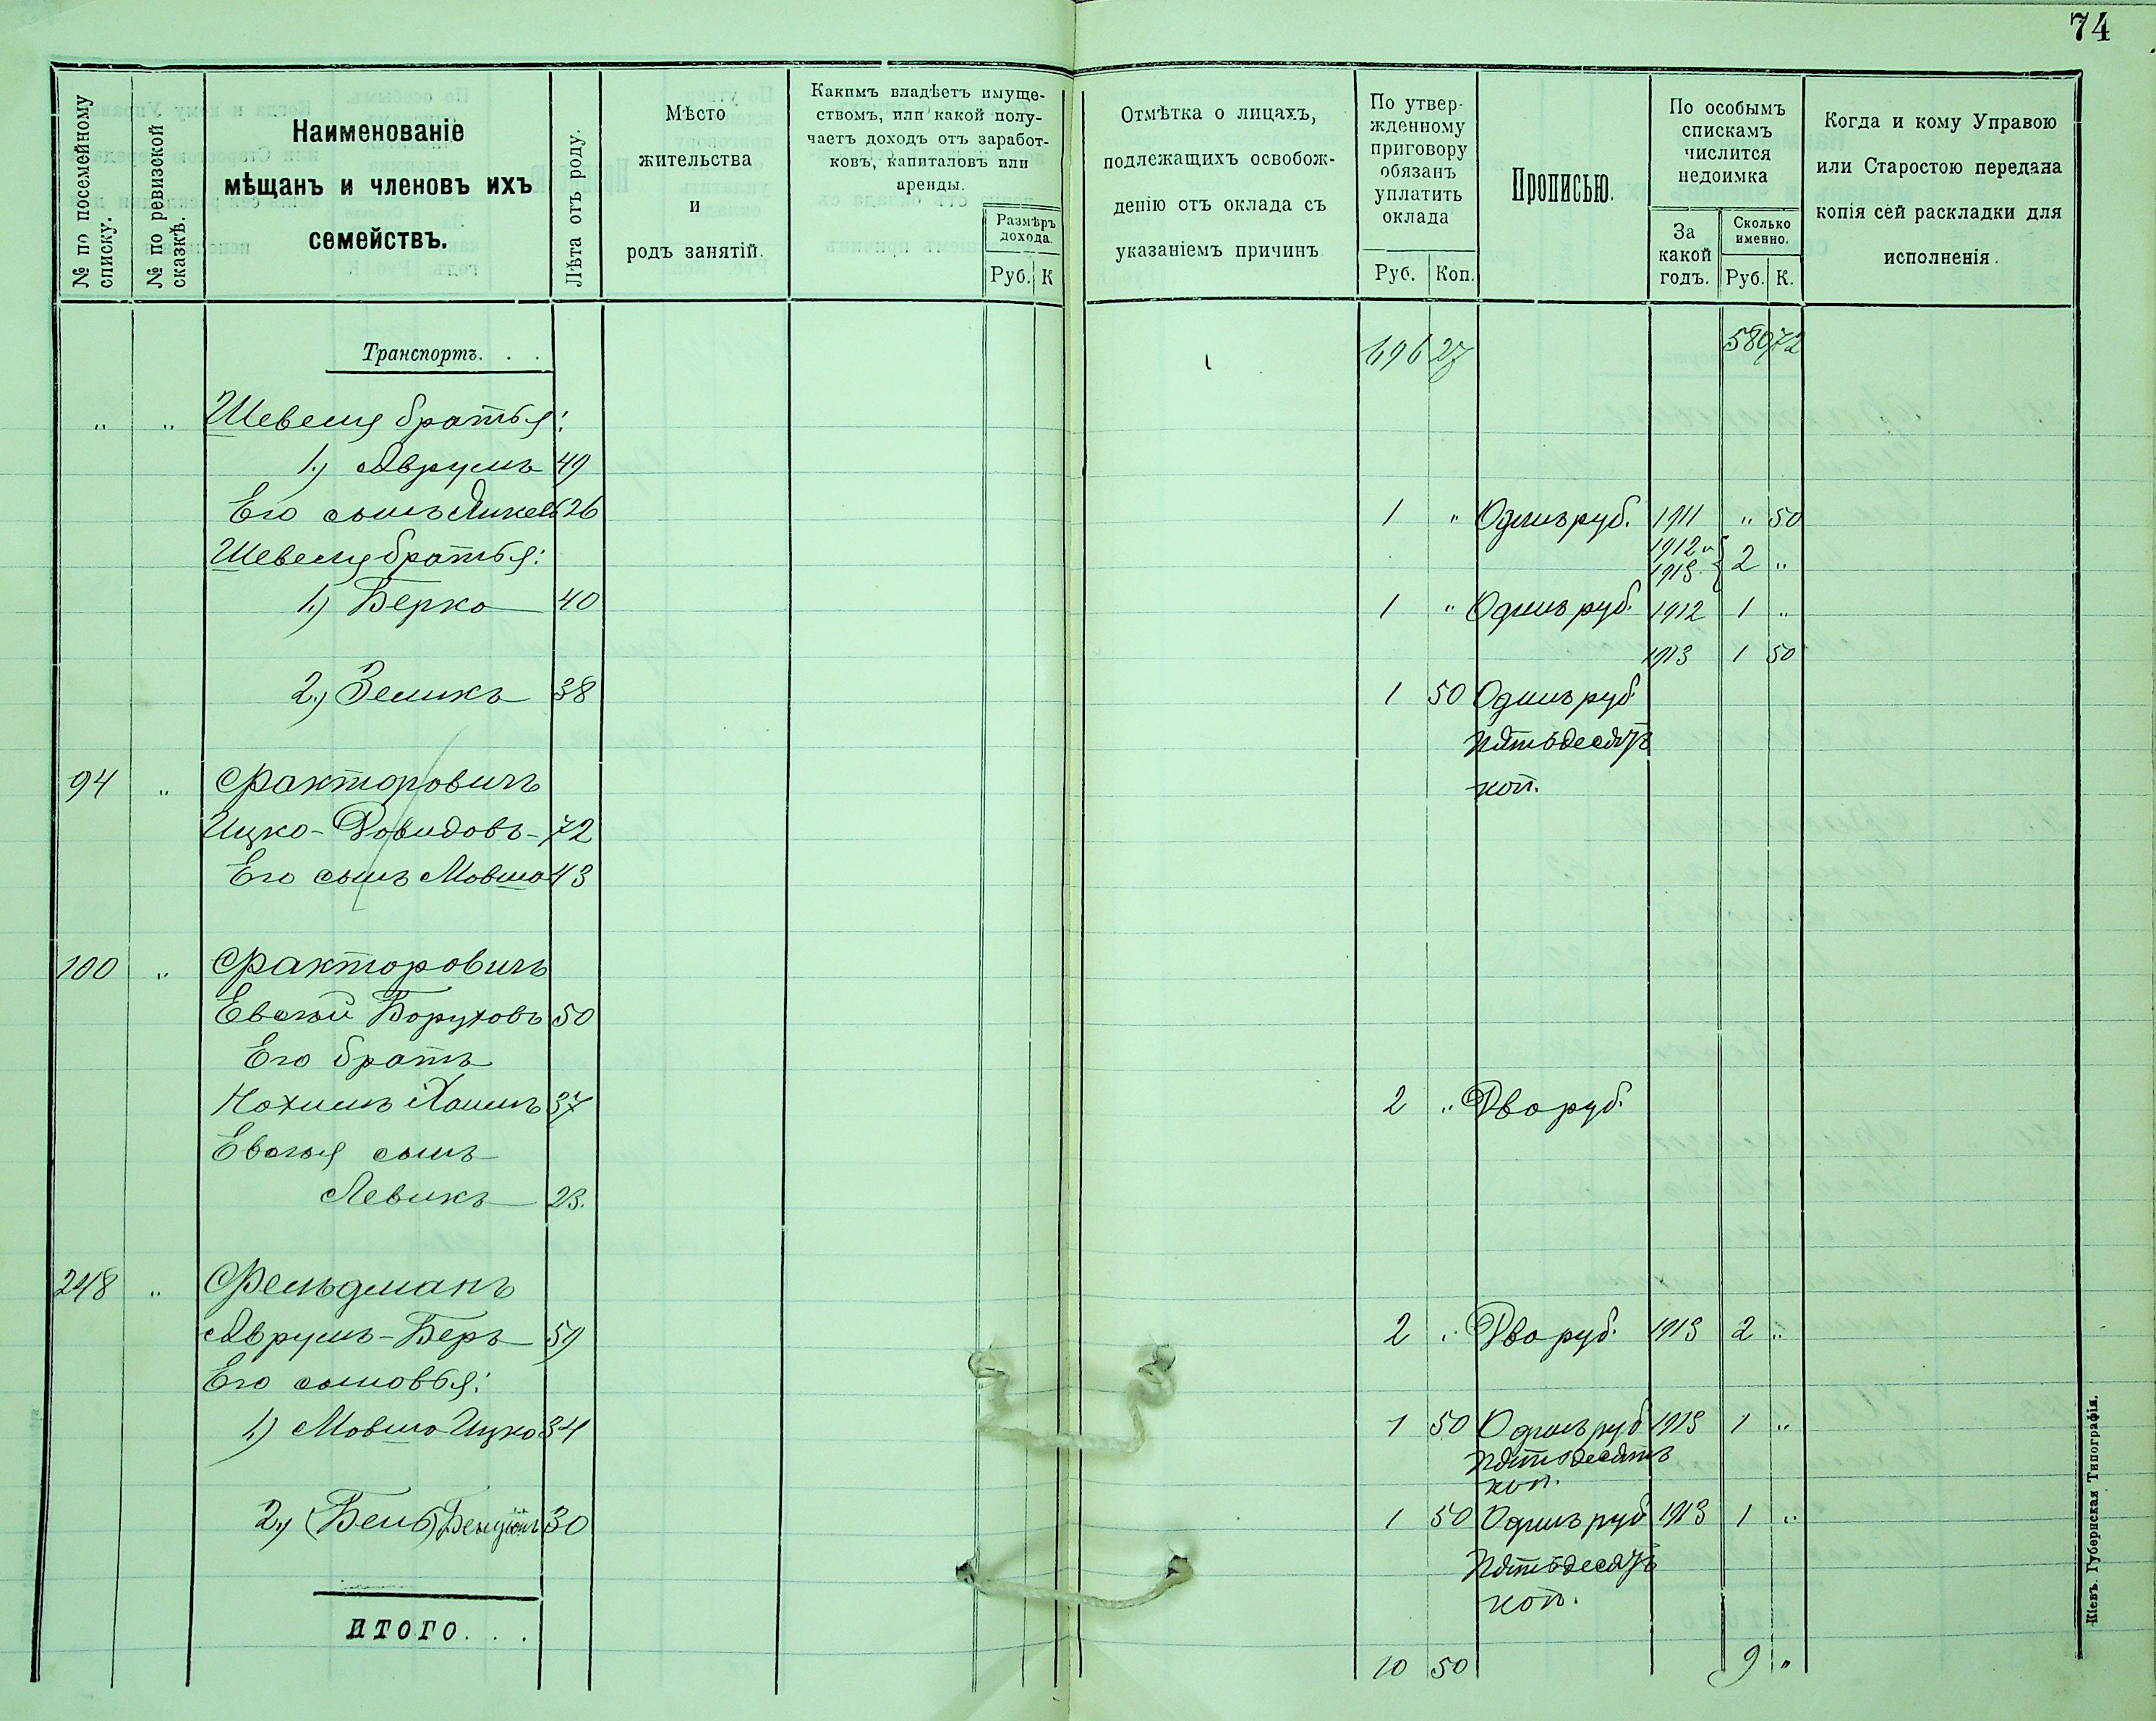 74
№ по посемейному списку.
№ по ревизской сказкѣ.
Наименованіе
мѣщанъ и членовъ ихъ
семействъ.
Лѣта отъ роду.
Мѣсто
жительства
и
родъ занятій.
Какимъ владѣетъ имуще-
ствомъ, или какой полу-
чаетъ доходъ отъ заработ-
ковъ, капиталовъ или
аренды.
Размѣръ
дохода.
Руб. К
Отмѣтка о лицахъ,
подлежащихъ освобож-
денію отъ оклада съ
указаніемъ причинъ
По утвер-
жденному
приговору
обязанъ
уплатить
оклада
Руб. Коп.
Прописью.
По особымъ
спискамъ
числится
недоимка
За
какой
годъ.
Сколько
именно.
Руб. К.
Когда и кому Управою
или Старостою передана
копія сей раскладки для
исполненія.
Транспортъ. . . 696 27 580 72
" " Шевеля братья:
1.) Аврумъ 49
Его сынъ 26 1 " Одинъ руб. 1911 " 50
Шевеля братья: 1912 и 1913 2 "
1.) Берко 40 1 " Одинъ руб. 1912 1 "
1913 1 50
2.) Зеликъ 38 1 50 Одинъ руб.
пятьдесятъ
94 " Факторовичъ коп.
Ицко-Довидовъ- 72
Его сынъ Мовша 43
100 " Факторовичъ
Евсѣй Боруховъ 50
Его братъ
Нохимъ Хаимъ 37 2 " Два руб.
Евсѣя сынъ
Левикъ 23.
248 " Фельдманъ
Аврумъ-Беръ 59 2 " Два руб. 1913 2 "
Его сыновья:
1.) Мовша Ицко 34 1 50 Одинъ руб 1913 1 "
пятьдесятъ
коп.
2.) (Бень) Бенціонъ 30 1 50 Одинъ руб 1913 1 "
пятьдесятъ
коп.
ИТОГО. . .
10 50 9 "
Кіевъ. Губернская Типографія.